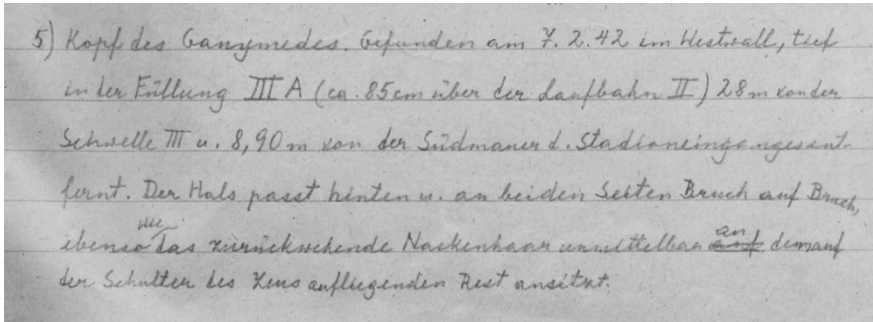 5) Kopf des Ganymedes. Gefunden am 7.2.42 im Westwall, tief
in der Füllung III A (ca. 85 cm über der Laufbahn II) 28 m von der
Schwelle III u. 8,90 m von der Südmauer d. Stadioneinganges ent-
fernt. Der Hals passt hinten u. an beiden Seiten Bruch auf Bruch,
ebenso wie das zurückwehende Nackenhaar unmittelbar an dem auf
der Schulter des Zeus aufliegenden Rest ansitzt.